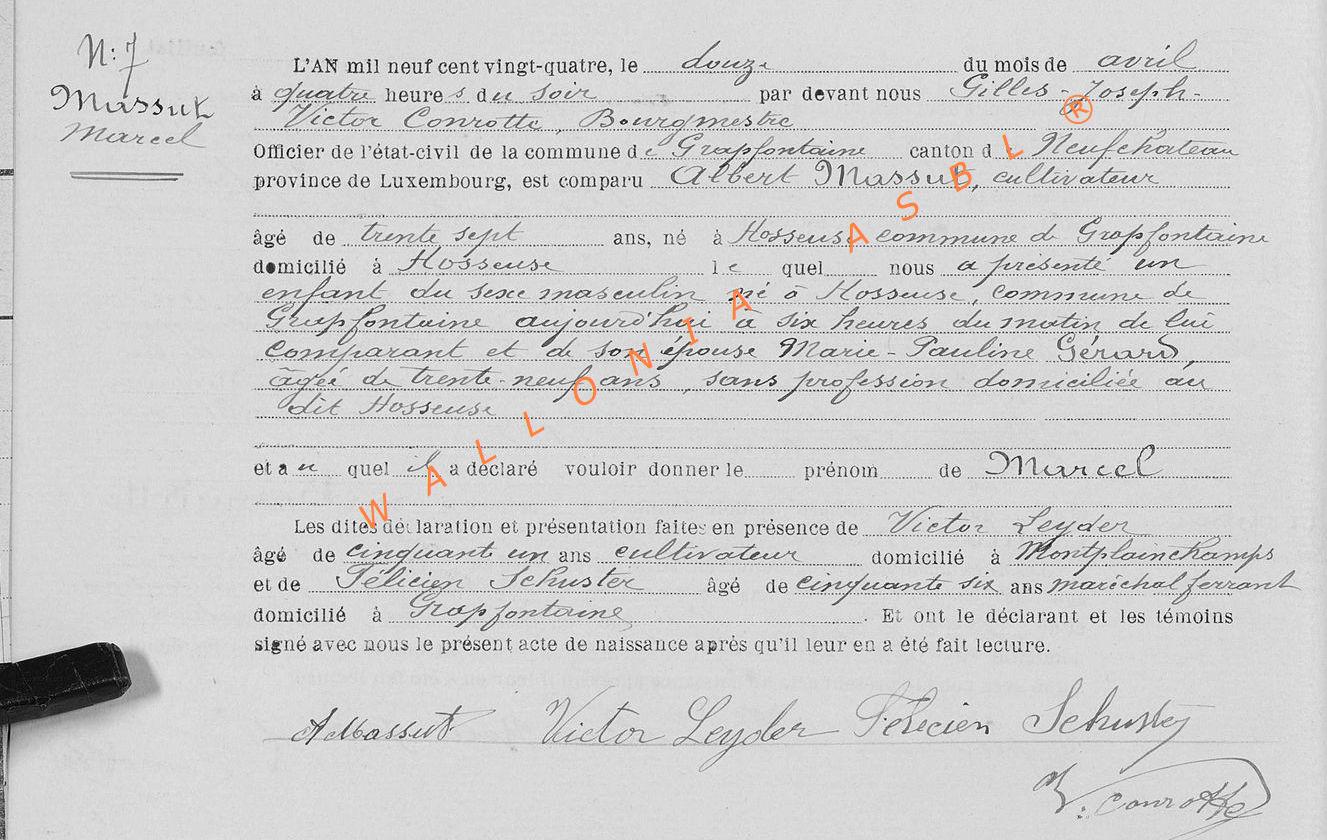 N: 7
Massut
Marcel
L'AN mil neuf cent vingt-quatre, le douze du mois de avril
à quatre heures du soir par devant nous Gilles-Joseph-
Victor Conrotte, Bourgmestre
Officier de l'état-civil de la commune de Grapfontaine canton de Neufchateau
province de Luxembourg, est comparu Albert Massut, cultivateur
âgé de trente sept ans, né à Hosseuse commune de Grapfontaine
domicilié à Hosseuse lequel nous a présenté un
enfant du sexe masculin né à Hosseuse, commune de
Grapfontaine aujourd'hui à six heures du matin de lui
comparant et de son épouse Marie-Pauline Gérard,
âgée de trente-neuf ans, sans profession domiciliée au
dit Hosseuse
et au quel il a déclaré vouloir donner le prénom de Marcel
Les dites déclaration et présentation faites en présence de Victor Leyder
âgé de cinquant un ans cultivateur domicilié à Montplainchamps
et de Félicien Schuster âgé de cinquante six ans maréchal ferrant
domicilié à Grapfontaine. Et ont le déclarant et les témoins
signé avec nous le présent acte de naissance après qu'il leur en a été fait lecture.
AMassut Victor Leyder Félecien Schuster
V. Conrotte
WALLONIA ASBL ®